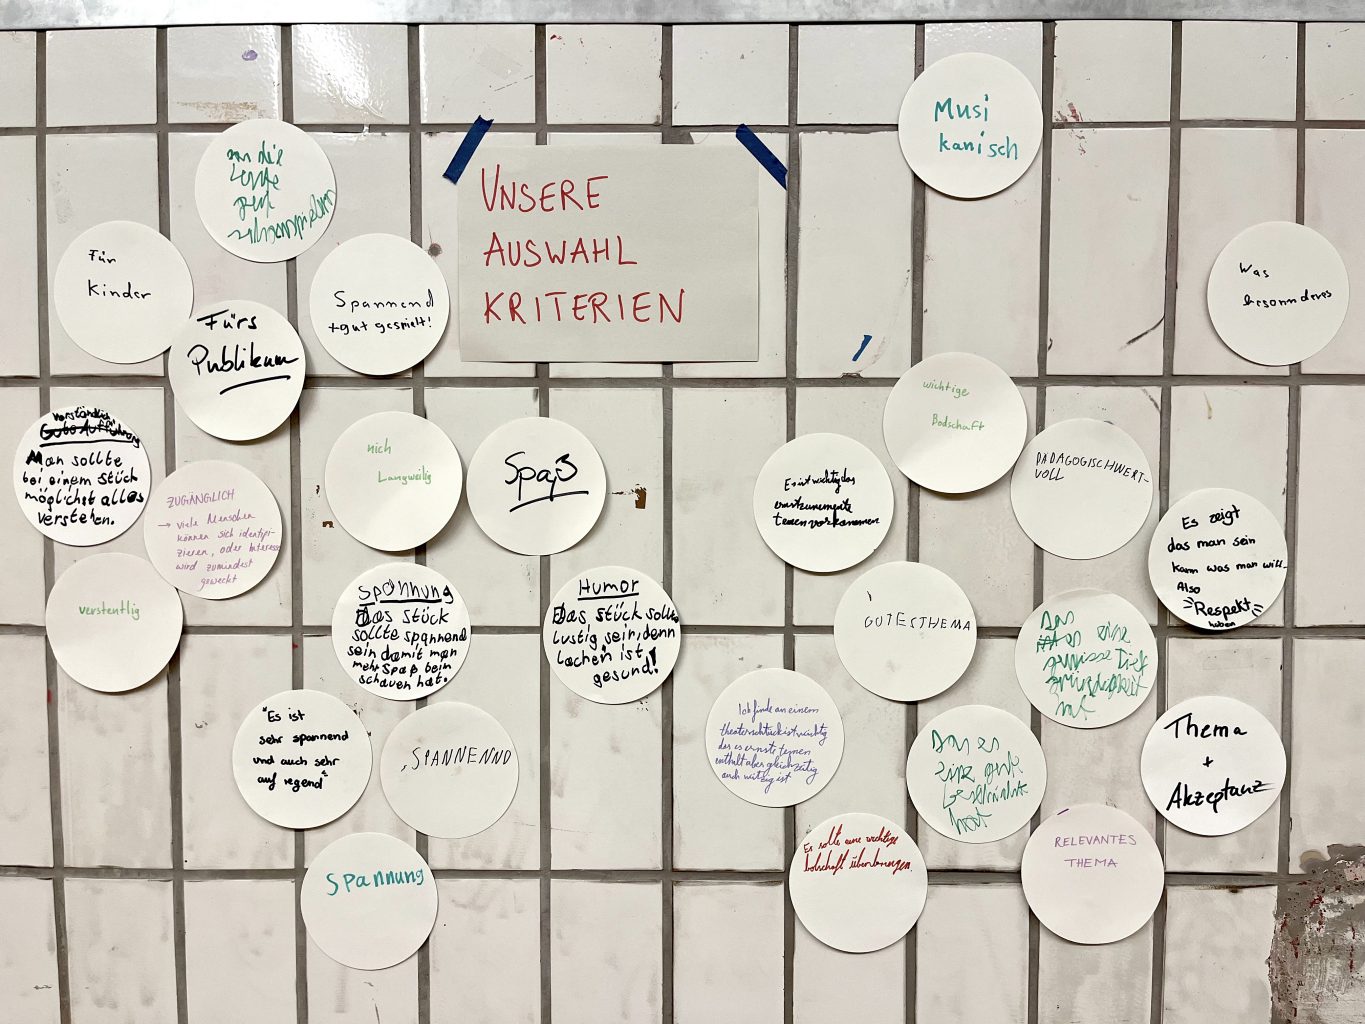 UNSERE
AUSWAHL
KRITERIEN
Musi
kanisch
die
Leute
gut
zusammenspielen
Für
Kinder
Spannend
+gut gespielt!
Fürs
Publikum
Was
besonderes
verständlich
Gute Aufführung
Man sollte
bei einem Stück
möglichst alles
verstehen.
ZUGÄNGLICH
→ viele Menschen
können sich identifi-
zieren, oder Interesse
wird zumindest
geweckt
verstentlig
nich
Langweilig
Spaß
Spannung
Das Stück
sollte spannend
sein damit man
mehr Spaß beim
schauen hat.
Humor
Das Stück sollte
lustig sein, denn
lachen ist
gesund!
"Es ist
sehr spannend
und auch sehr
auf regend"
SPANNENND
Spannung
wichtige
Bodschaft
Es ist wichtig das
ernstzunemente
temen vorkommen
PÄDAGOGISCHWERT-
VOLL
Es zeigt
das man sein
kann was man will.
Also
"Respekt"
haben
GUTES THEMA
Das
es eine
gewisse Tief
hat
Ich finde an einem
theaterschtück ist wichtig
das es ernste temen
enthält aber gleichzeitig
auch witzig ist
Das es
eine gute
Geschichte
hat
Thema
+
Akzeptanz
Es solte eine wichtige
botschaft überbringen.
RELEVANTES
THEMA